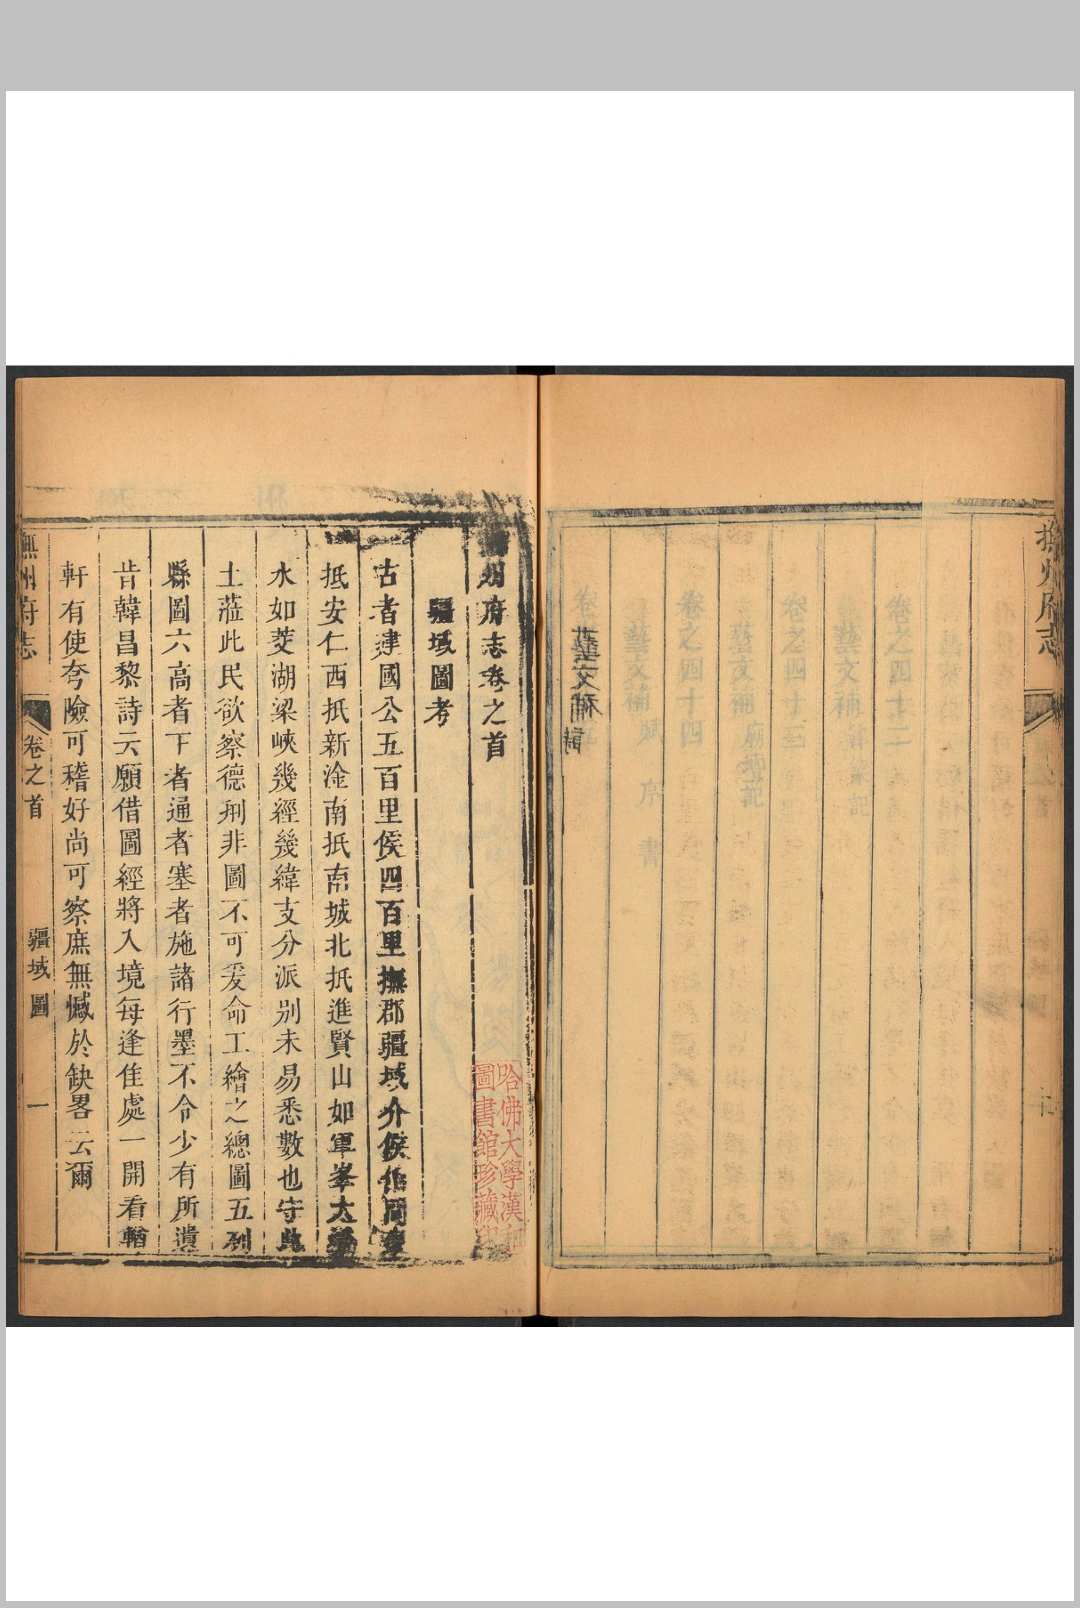 藝文補 詩
撫州府志
州府志卷之首
疆域圖考
古者建國公五百里侯四百里撫郡疆域介侯伯間東
抵安仁西抵新淦南抵南城北抵進賢山如軍峯大
水如茭湖梁峽幾經幾緯支分派别未易悉數也守此
土蒞此民欲察德刑非圖不可爰命工繪之總圖五列
縣圖六高者下者通者塞者施諸行墨不令少有所遺
昔韓昌黎詩云願借圖經將入境每逢佳處一開看輶
軒有使夸險可稽好尚可察庶無憾於缺畧云爾
撫州府志
卷之首
疆域圖
一
哈佛大學漢和
圖書館珍藏印